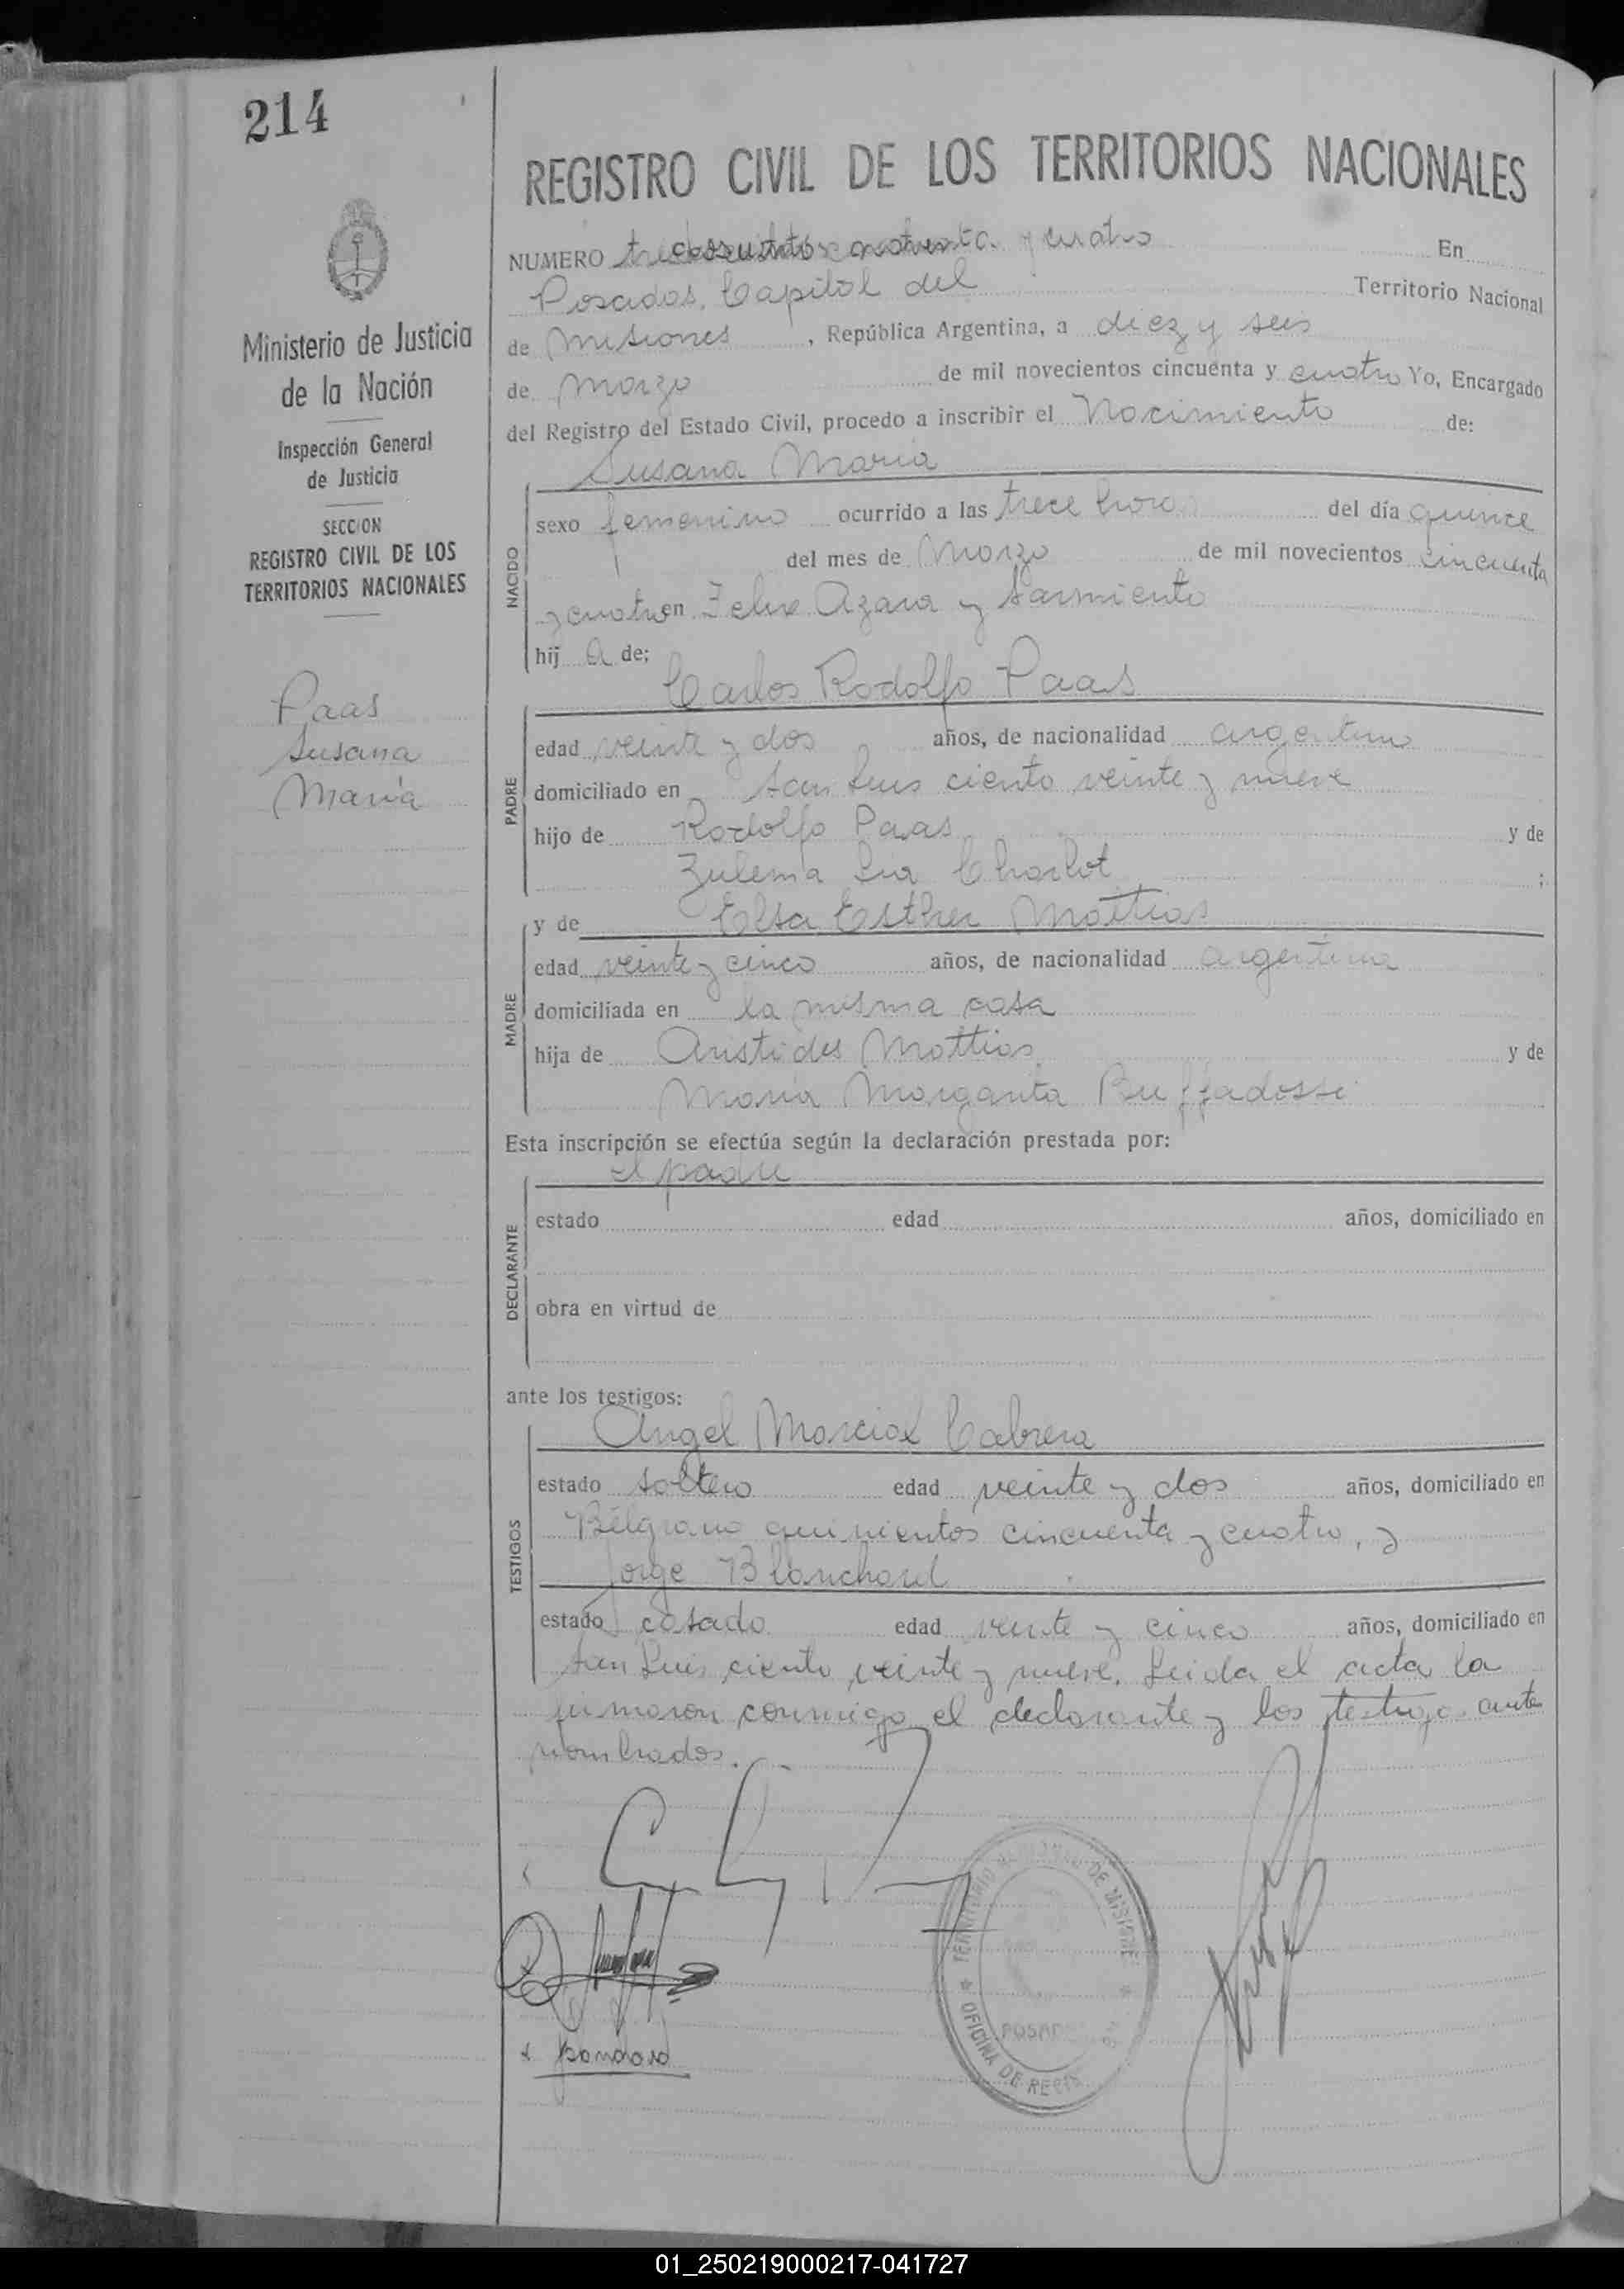 214
REGISTRO CIVIL DE LOS TERRITORIOS NACIONALES
NUMERO y cuatro En
Posadas, Capital del Territorio Nacional
de Misiones, República Argentina, a diez y seis
de Marzo de mil novecientos cincuenta y cuatro Yo, Encargado
del Registro del Estado Civil, procedo a inscribir el Nacimiento de:
Susana María
NACIDO
sexo femenino ocurrido a las trece horas del día quince
del mes de Marzo de mil novecientos cincuenta
y cuatro en Felix Azara y Sarmiento
hij a de;
Carlos Rodolfo Paas
PADRE
edad veinte y dos años, de nacionalidad argentino
domiciliado en San Luis ciento veinte y nueve
hijo de Rodolfo Paas y de
Zulema Lia Charlot ;
y de Elsa Esther Mattias
MADRE
edad veinte y cinco años, de nacionalidad argentina
domiciliada en la misma casa
hija de Aristides Mattias y de
María Margarita Buffadossi
Esta inscripción se efectúa según la declaración prestada por:
el padre
DECLARANTE
estado edad años, domiciliado en
obra en virtud de
ante los testigos:
Angel Marcial Cabrera
TESTIGOS
estado soltero edad veinte y dos años, domiciliado en
Belgrano quinientos cincuenta y cuatro, y
Jorge Blanchard
estado casado edad veinte y cinco años, domiciliado en
San Luis ciento veinte y nueve. Leida el acta la
firmaron conmigo el declarante y los testigos ante
nombrados.
Ministerio de Justicia
de la Nación
Inspección General
de Justicia
SECCION
REGISTRO CIVIL DE LOS
TERRITORIOS NACIONALES
Paas
Susana
María
TERRITORIO DE MISIONES
OFICINA DE
01_250219000217-041727